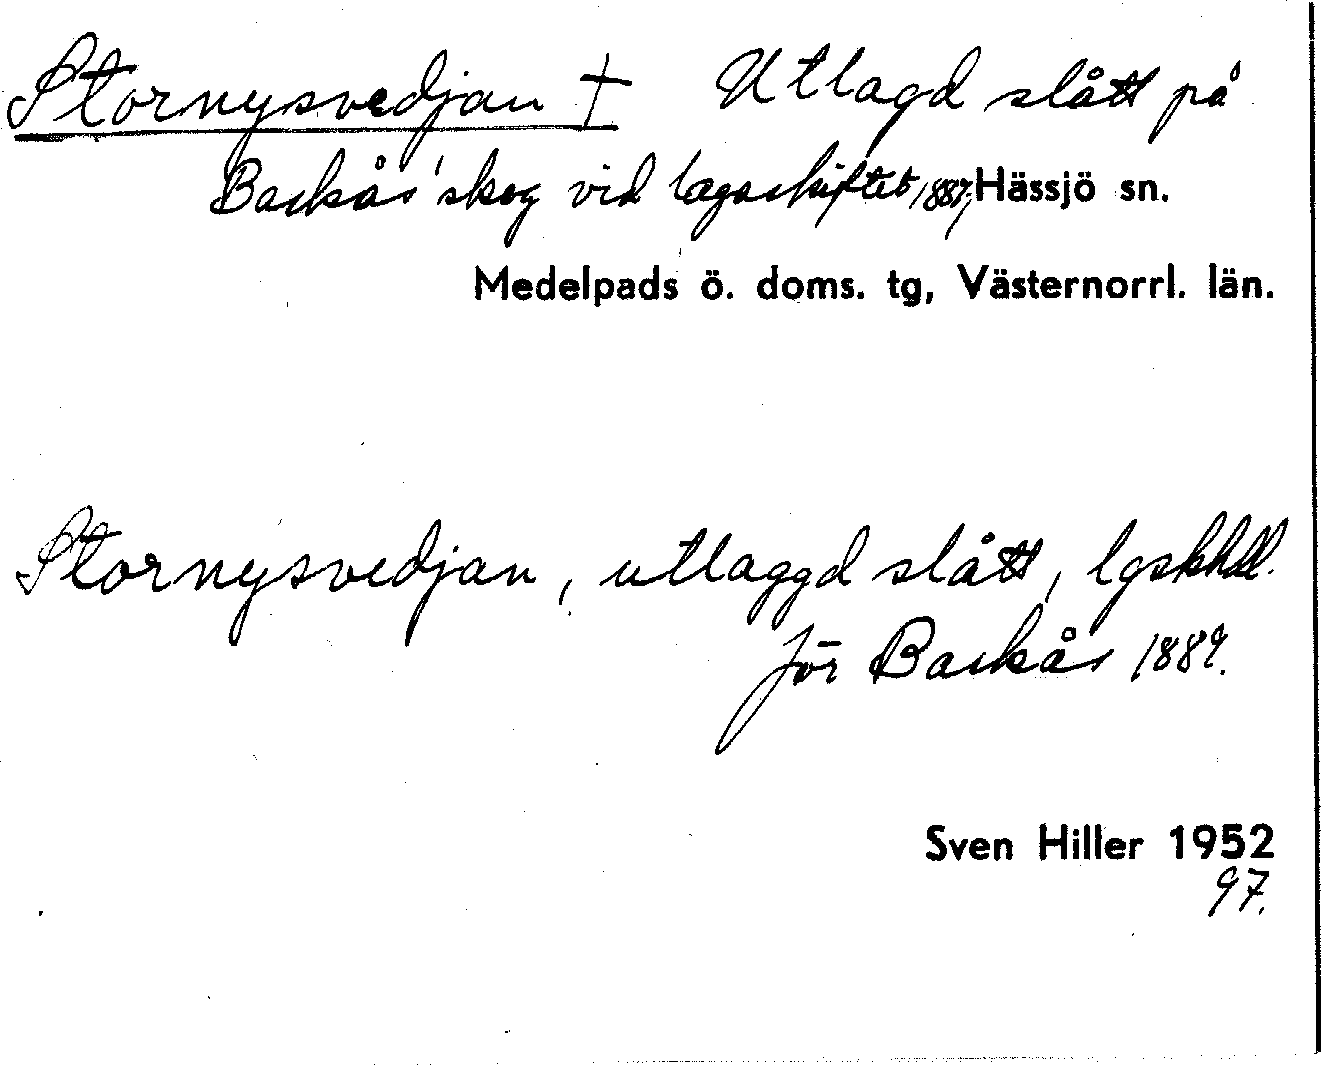 Stornysvedjan † Utlagd slått på
Backås' skog vid lagaskiftet 1887, Hässjö sn.
Medelpads ö. doms. tg, Västernorrl. län.
Stornysvedjan, utlaggd slått, lgskhdl.
för Backås 1889.
Sven Hiller 1952
97.